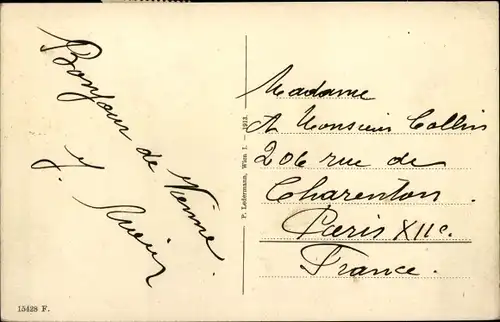 Bonjour de Vienne.
J.
P. Ledermann, Wien I. — 1913.
Madame
A Monsieur Collin
206 rue de
Charenton.
Paris XIIe.
France.
15428 F.